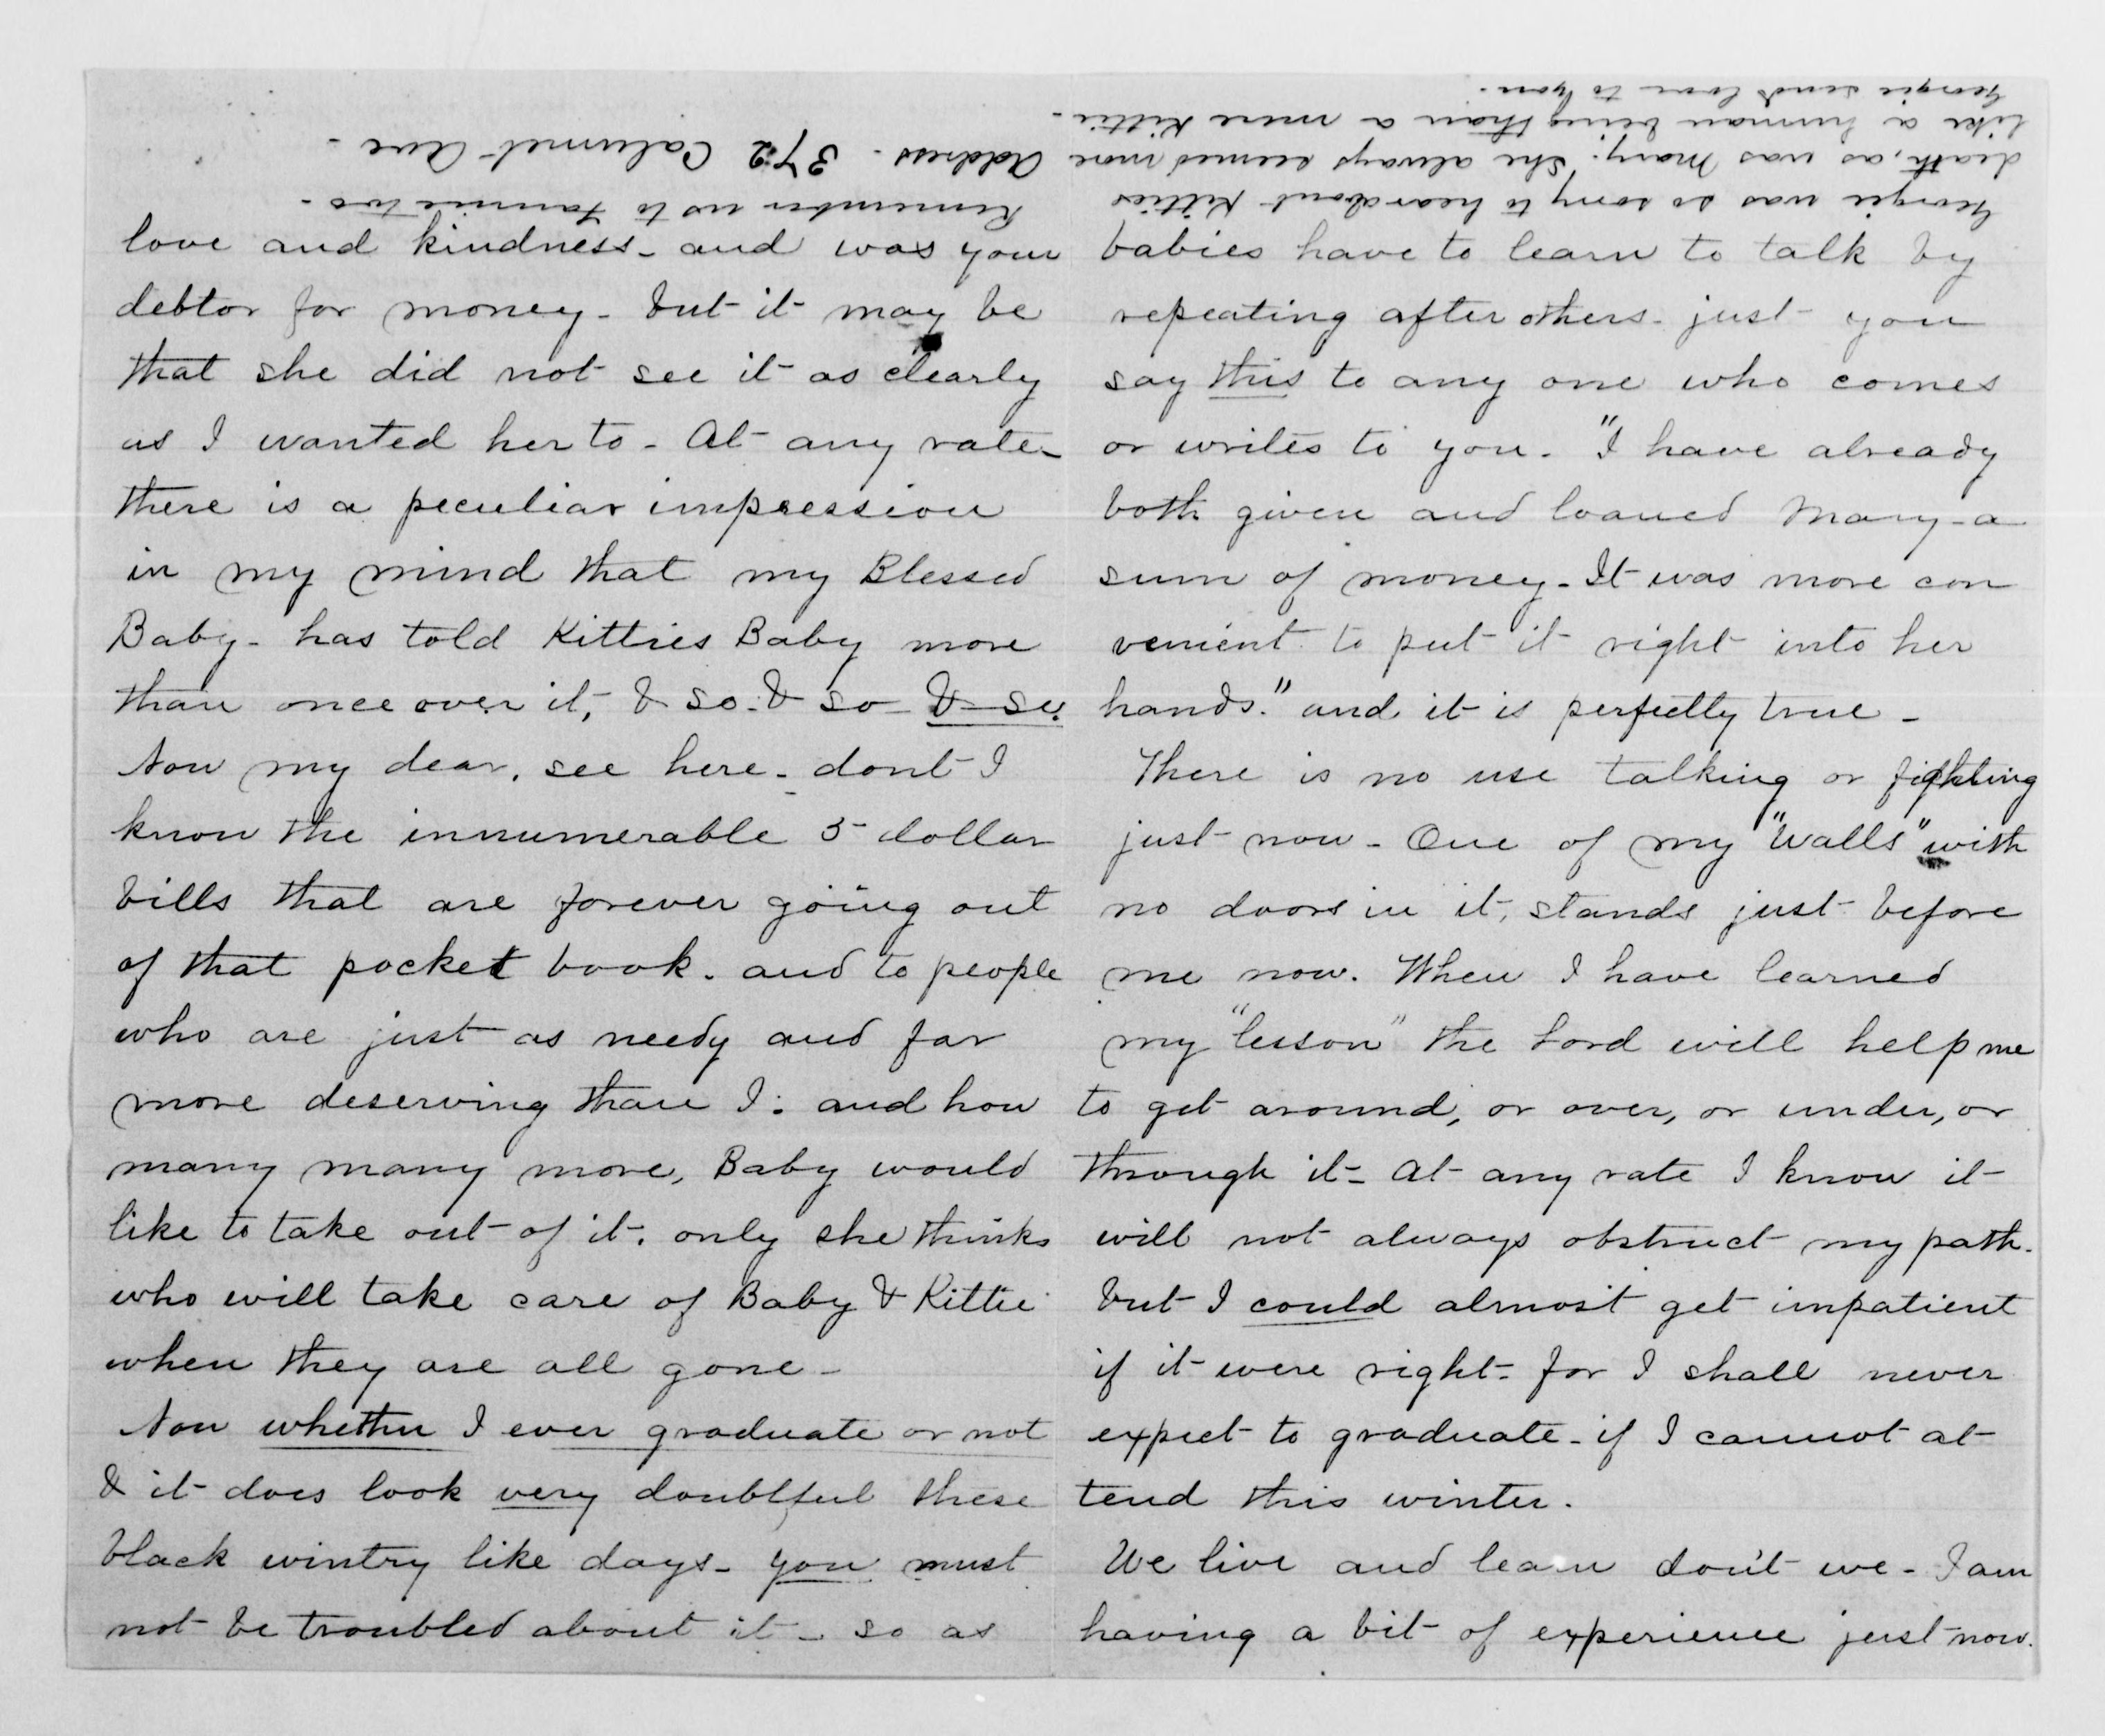 love and kindness - and was your
debtor for money - but it may be
that she did not see it as clearly
as I wanted her to - At any rate -
there is a peculiar impression
in my mind that my Blessed
Baby - has told Kitties Baby more
than once over it, & so & so & so.
Now my dear, see here - dont I
know the innumerable 5 dollar
bills that are forever going out
of that pocket book - and to people
who are just as needy and far
more deserving than I: and how
many many more, Baby would
like to take out of it. only she thinks
who will take care of Baby & Kittie
when they are all gone -
Now whether I ever graduate or not
& it does look very doubtful these
black wintry like days - you must
not be troubled about it - so as
babies have to learn to talk by
repeating after others - just you
say this to any one who comes
or writes to you. "I have already
both given and loaned Mary - a
sum of money - It was more con
venient to put it right into her
hands." and it is perfectly true -
There is no use talking or fighting
just now - One of my "Walls" with
no doors in it, stands just before
me now. When I have learned
my "lesson" the Lord will help me
to get around, or over, or under, or
through it - At any rate I know it
will not always obstruct my path.
but I could almost get impatient
if it were right - for I shall never
expect to graduate - if I cannot at
tend this winter.
We live and learn don't we - I am
having a bit of experience just now.
Georgie was so sorry to hear about Kitties
death, as was Mary. She always seemed more
like a human being than a mere Kittie -
Georgie sends love to you.
Remember us to Fannie two -
Address - 372 Calumet Ave -